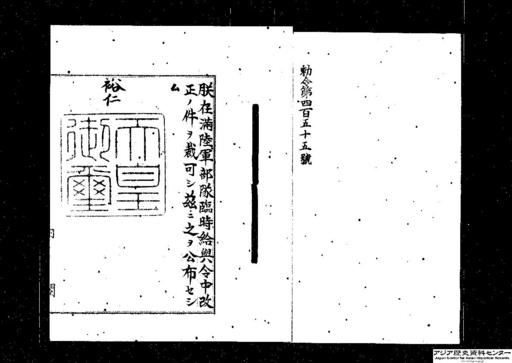 勅令第四百五十五號
朕在満陸軍部隊臨時給與令中改
正ノ件ヲ裁可シ茲ニ之ヲ公布セシ
ム
裕仁
天皇
御璽
アジア歴史資料センター
Japan Center for Asian Historical Records